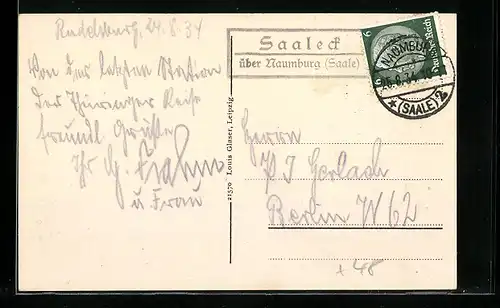 Rudelsburg, 24.8.34
Von der letzten Station
der Thüringer Reise
freundl. Grüße
Ihr
u Frau
Saaleck
über Naumburg (Saale)
6 Deutsches Reich 6
NAUMBURG
25.8.34
* (SAALE) 2
21570 Louis Glaser, Leipzig
Herrn
P J Gerlach
Berlin W 62
+ 48